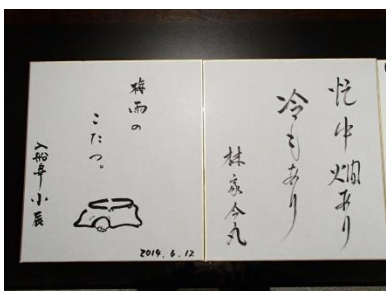 忙中燗あり
冷もあり
林家今丸
梅雨の
こたつ。
入船亭小辰
2014.6.12